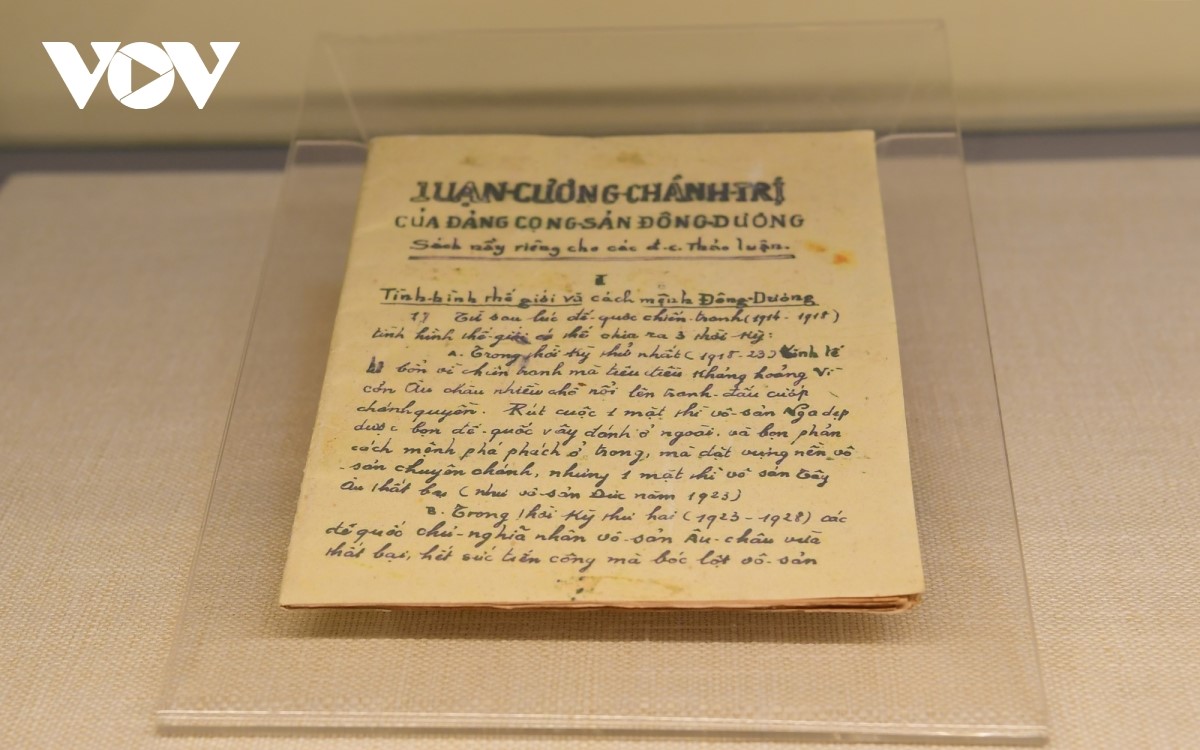 VOV
LUẬN-CƯƠNG-CHÁNH-TRỊ
CỦA ĐẢNG CỌNG-SẢN ĐÔNG-DƯƠNG
Sách nầy riêng cho các đ.c. Thảo luận.
I
Tình-hình thế giới và cách mệnh Đông-Dương
1) Từ sau lúc đế-quốc chiến-tranh (1914-1918)
tình hình thế-giới có thể chia ra 3 thời kỳ:
A. Trong thời kỳ thứ nhất (1918-23) Kinh tế
bổn vì chiến tranh mà tiêu điều khủng hoảng Vì
cớn Âu châu nhiều chỗ nổi lên tranh-đấu cướp
chánh quyền. Rút cuộc 1 mặt thì vô-sản Nga dẹp
được bọn đế-quốc vây đánh ở ngoài, và bọn phản
cách mệnh phá phách ở trong, mà đặt vựng nền vô
-sản chuyên chánh, nhưng 1 mặt thì vô sản Tây
Âu thất bại (như vô-sản Đức năm 1923)
B. Trong thời kỳ thứ hai (1923-1928) các
đế quốc chủ-nghĩa nhân vô-sản Âu-châu vừa
thất bại, hết sức tiến công mà bóc lột vô-sản